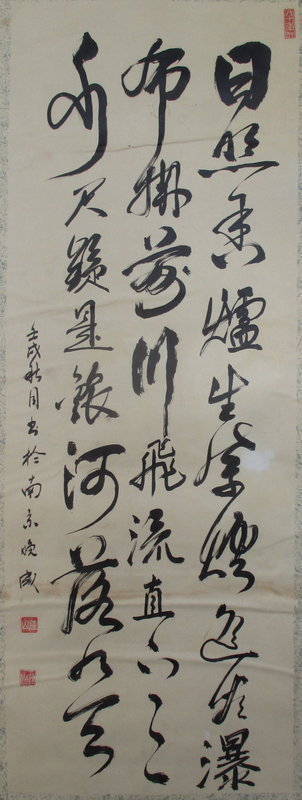 日照香爐生紫煙遙看瀑
布掛前川飛流直下三
千尺疑是銀河落九天
壬戌秋月书於南京